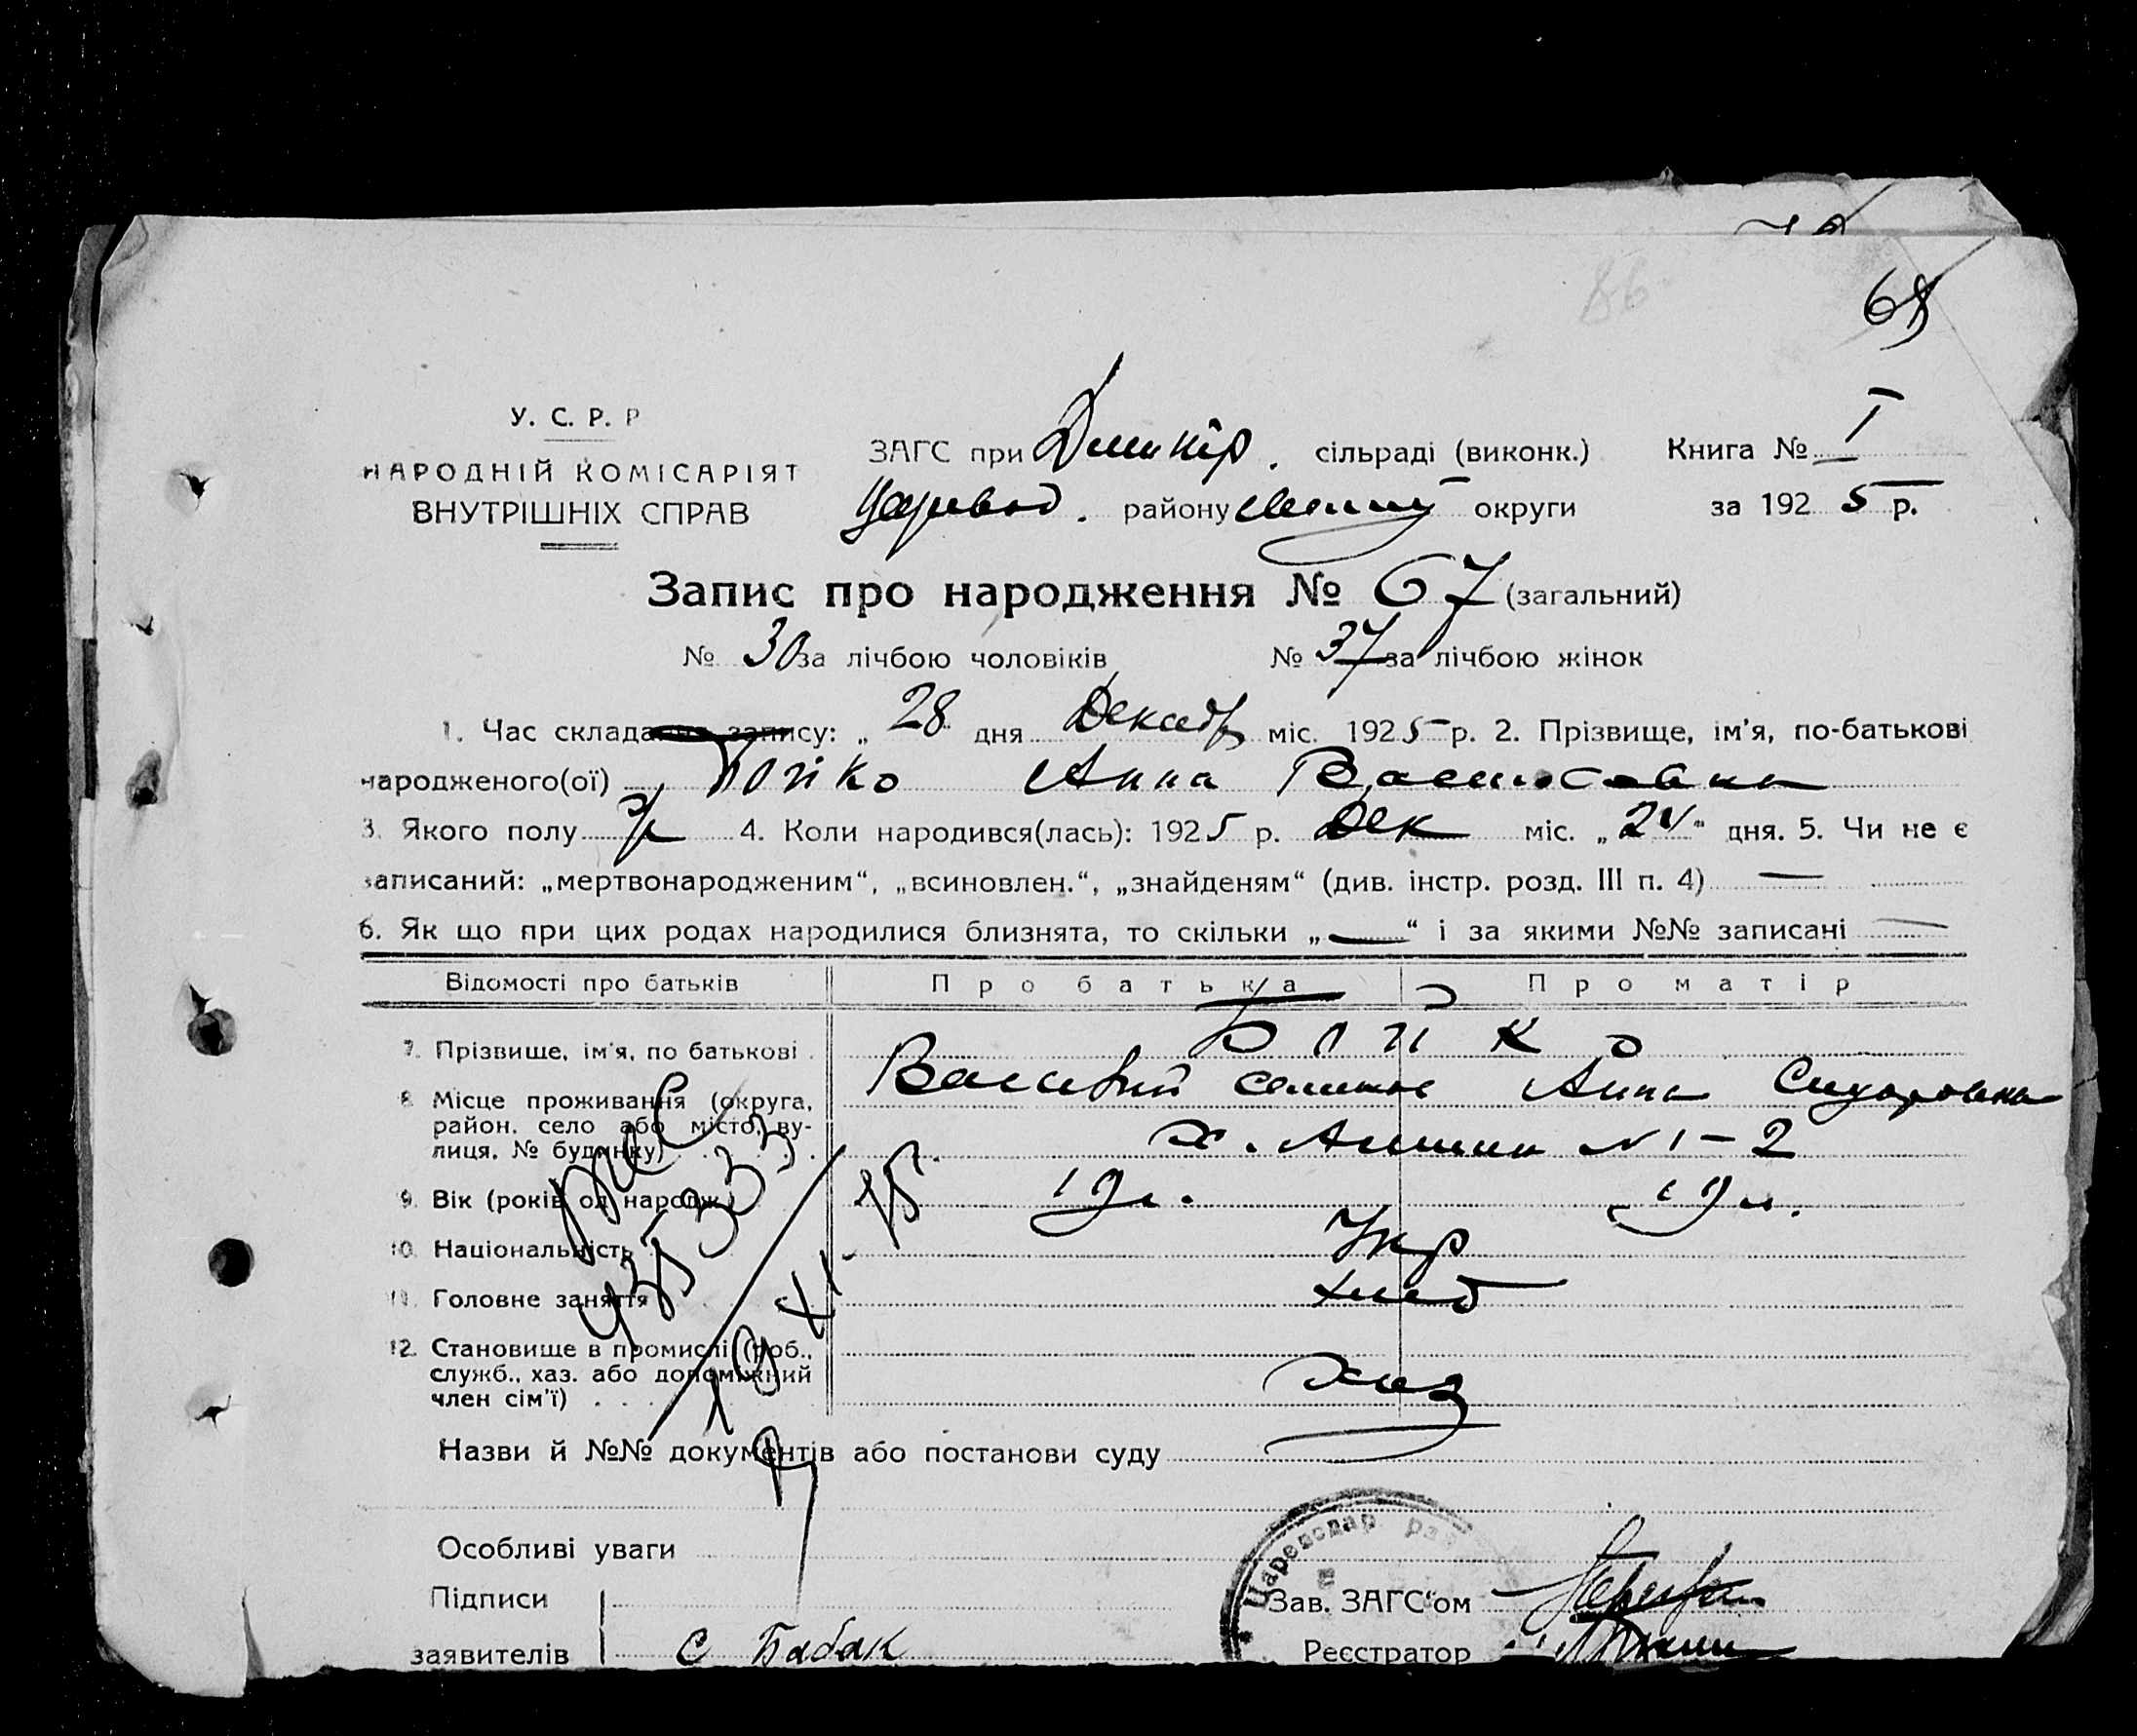 68
У. С. Р. Р
НАРОДНІЙ КОМІСАРІЯТ
ВНУТРІШНІХ СПРАВ
ЗАГС при сільраді (виконк.)
району округи
Книга № I
за 192 5 р.
Запис про народження № 67 (загальний)
№ 30 за лічбою чоловіків № 37 за лічбою жінок
1. Час складання запису: „ 28 дня Декабр міс. 1925 р. 2. Прізвище, ім'я, по-батькові
народженого(ої) Бойко Анна Васильевна
3. Якого полу ж 4. Коли народився(лась): 1925 р. Дек міс. „24“ дня. 5. Чи не є
записаний: „мертвонародженим“, „всиновлен.“, „знайденям“ (див. інстр. розд. III п. 4) —
6. Як що при цих родах народилися близнята, то скільки „—“ і за якими №№ записані —
Відомості про батьків Про батька Про матір
7. Прізвище, ім'я, по батькові Бойко
Василий Анна
8. Місце проживання (округа, район, село або місто, ву-
лиця, № будинку) х. № 1-2
9. Вік (років од народж.) 19 л. 19 л.
10. Національність Укр
11. Головне заняття хлеб
12. Становище в промислі (роб.,
служб., хаз. або допоміжний
член сім'ї) Хаз
Назви й №№ документів або постанови суду
Особливі уваги
Підписи
заявителів С Бабак
Цареводар ра
Зав. ЗАГС“ом
Реєстратор